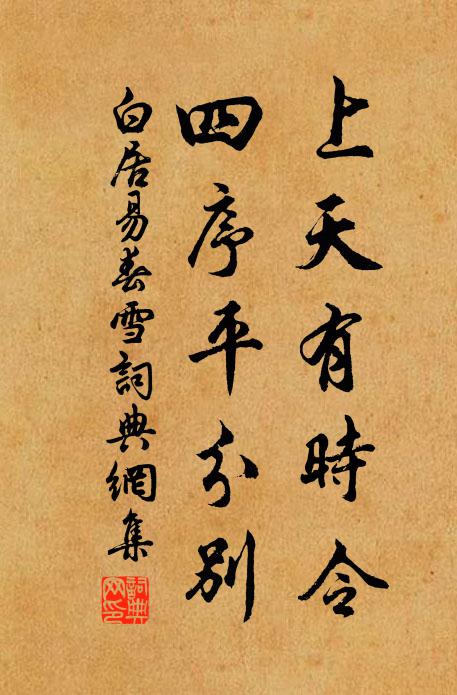 上天有時令
四序平分別
白居易春雪詞典網集
詞典
网印